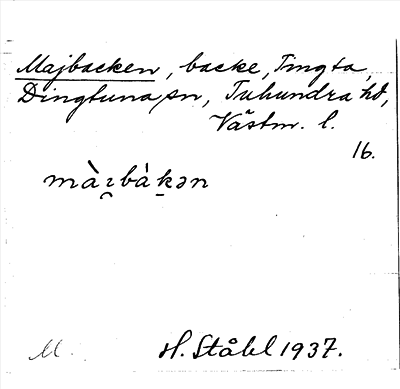 Majbacken, backe, Tingta,
Dingtuna sn, Tuhundra hd,
Västm. l.
16.
màı̯bàḵən
M.
H. Ståhl 1937.